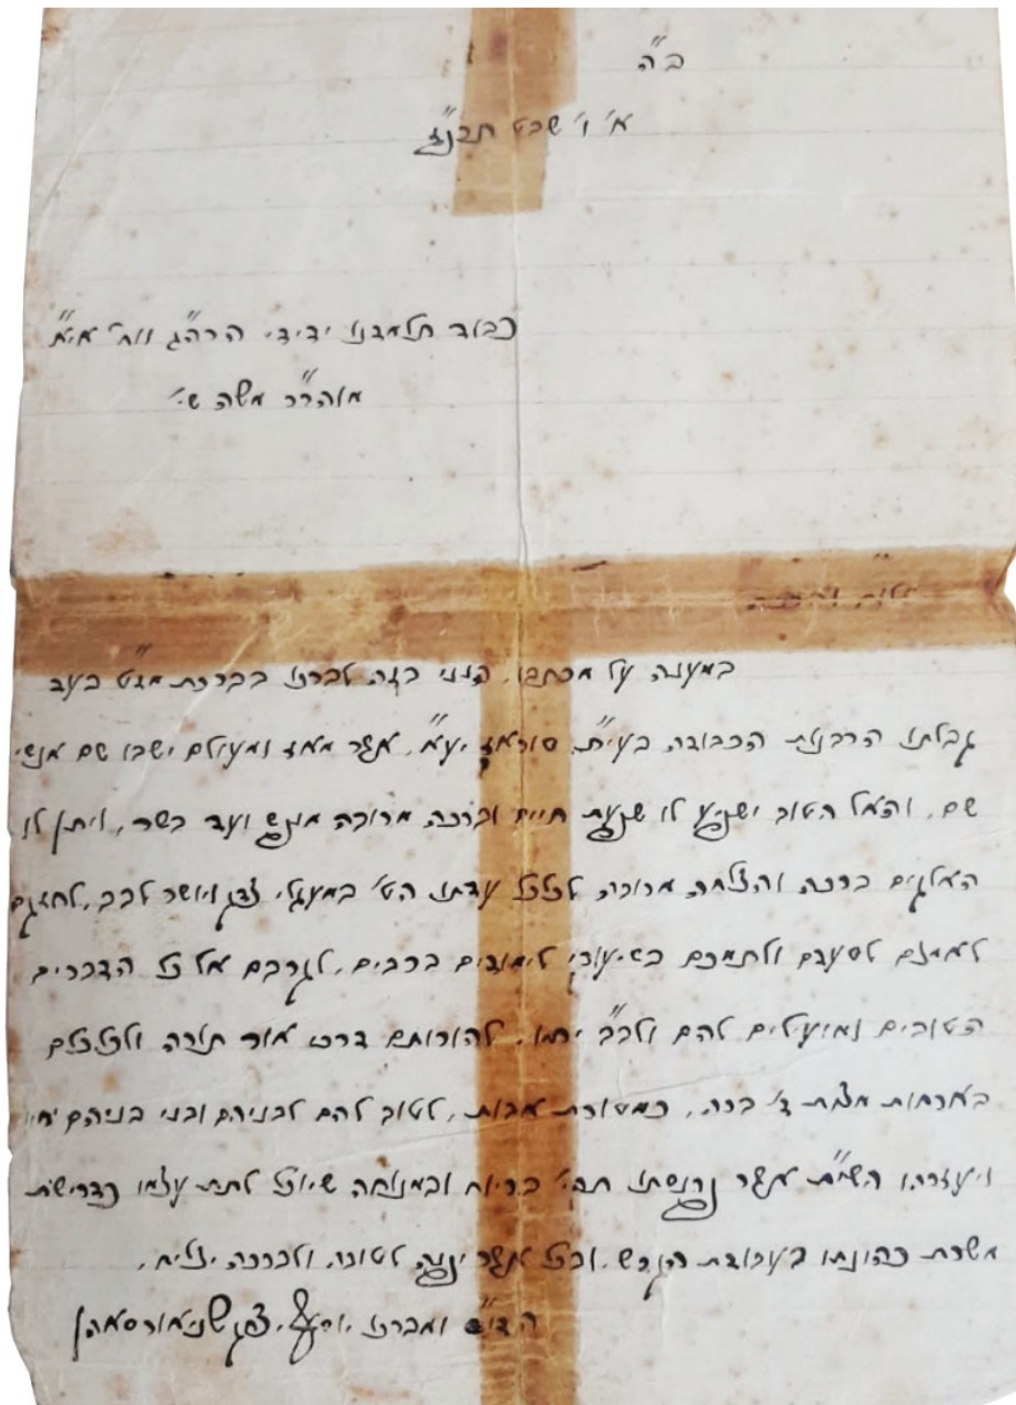 ב"ה
א' ו' שבט תרנ"ז
כבוד תלמדנו ידידי הרה"ג וות' אי"א
מוהר"ר משה שי'
במענה על מכתבו, הנני בזה לברכו בברכת מז"ט בעד
קבלתו הרבנות הכבודה בעי"ת יע"א, אשר מאז ומעולם ישבו שם אנשי
שם, והאל הטוב ישפיע לו שפעת חיים וברכה מרובה מנפש ועד בשר, ויתן לו
האלקים ברכה והצלחה מרובה לכלכל עדתו הט' במעגלי צדק ויושר לבב, לחזקם
לאמצם לסעדם ולתמכם בשיעורי לימודים ברבים, לקרבם אל כל הדברים
הטובים ומועילים להם ולב"ב יחיו, להורותם דרכי אור תורה ולכלכלם
בארחות מצות ד' ברה, כמסורת אבות, לטוב להם לבניהם ובני בניהם יחיו
ויעזרהו השי"ת אשר פרנסתו תהי' בריוח ובמנוחה שיוכל לתת עצמו כדרישת
משרת כהונתו בעבודת הקדש, ובכל אשר יפנה לטובה ולברכה יצליח,
הדו"ש ומברכו יוסף יצחק שניאורסאהן